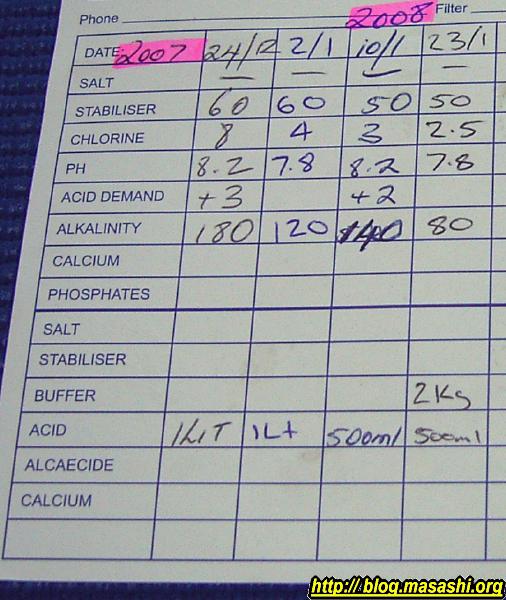 Phone 2008 Filter
DATE: 2007 24/12 2/1 10/1 23/1
SALT — — — —
STABILISER 60 60 50 50
CHLORINE 8 4 3 2.5
PH 8.2 7.8 8.2 7.8
ACID DEMAND +3 +2
ALKALINITY 180 120 140 80
CALCIUM
PHOSPHATES
SALT
STABILISER
BUFFER 2Kg
ACID 1LiT 1Lt 500ml 500ml
ALCAECIDE
CALCIUM
http:// blog.masashi.org